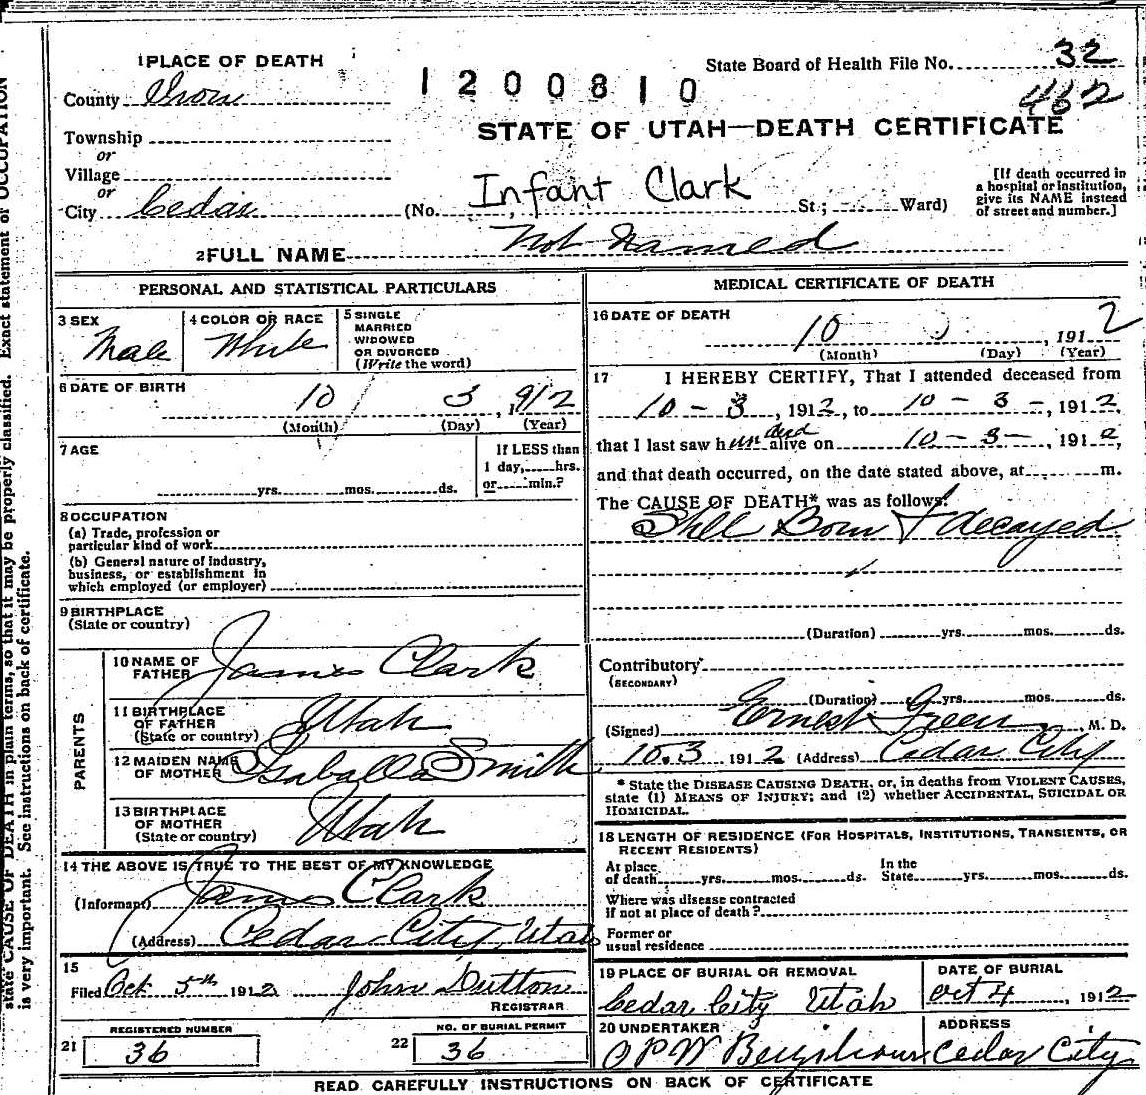 1 PLACE OF DEATH
1200810
State Board of Health File No. 32
462
County Iron
STATE OF UTAH—DEATH CERTIFICATE
Township
or
Village
or
City Cedar
Infant Clark
(No. St; Ward)
[If death occurred in
a hospital or institution,
give its NAME instead
of street and number.]
2 FULL NAME Not Named
PERSONAL AND STATISTICAL PARTICULARS
3 SEX
Male
4 COLOR OR RACE
White
5 SINGLE
MARRIED
WIDOWED
OR DIVORCED
(Write the word)
6 DATE OF BIRTH
10 3, 1912
(Month) (Day) (Year)
7 AGE
yrs. mos. ds.
If LESS than
1 day, hrs.
or min.?
8 OCCUPATION
(a) Trade, profession or
particular kind of work
(b) General nature of industry,
business, or establishment in
which employed (or employer)
9 BIRTHPLACE
(State or country)
PARENTS
10 NAME OF
FATHER James Clark
11 BIRTHPLACE
OF FATHER
(State or country) Utah
12 MAIDEN NAME
OF MOTHER Isabella Smith
13 BIRTHPLACE
OF MOTHER
(State or country) Utah
14 THE ABOVE IS TRUE TO THE BEST OF MY KNOWLEDGE
(Informant) James Clark
(Address) Cedar City, Utah
15
Filed Oct 5th 1912 John Dutton
REGISTRAR
REGISTERED NUMBER
21 36
NO. OF BURIAL PERMIT
22 36
MEDICAL CERTIFICATE OF DEATH
16 DATE OF DEATH
10 3, 1912
(Month) (Day) (Year)
17 I HEREBY CERTIFY, That I attended deceased from
10-3, 1912, to 10-3-, 1912,
that I last saw him dead alive on 10-3-, 1912,
and that death occurred, on the date stated above, at m.
The CAUSE OF DEATH* was as follows:
Still Born + decayed
(Duration) yrs. mos. ds.
Contributory
(SECONDARY)
(Duration) yrs. mos. ds.
(Signed) Ernest Green M. D.
10.3 1912 (Address) Cedar City
* State the DISEASE CAUSING DEATH, or, in deaths from VIOLENT CAUSES,
state (1) MEANS OF INJURY; and (2) whether ACCIDENTAL, SUICIDAL OR
HOMICIDAL.
18 LENGTH OF RESIDENCE (FOR HOSPITALS, INSTITUTIONS, TRANSIENTS, OR
RECENT RESIDENTS)
At place
of death yrs. mos. ds.
In the
State yrs. mos. ds.
Where was disease contracted
if not at place of death?
Former or
usual residence
19 PLACE OF BURIAL OR REMOVAL
Cedar City Utah
DATE OF BURIAL
Oct 4, 1912
20 UNDERTAKER
O P W
ADDRESS
Cedar City
READ CAREFULLY INSTRUCTIONS ON BACK OF CERTIFICATE
state CAUSE OF DEATH in plain terms, so that it may be properly classified. Exact statement of OCCUPATION
is very important. See instructions on back of certificate.